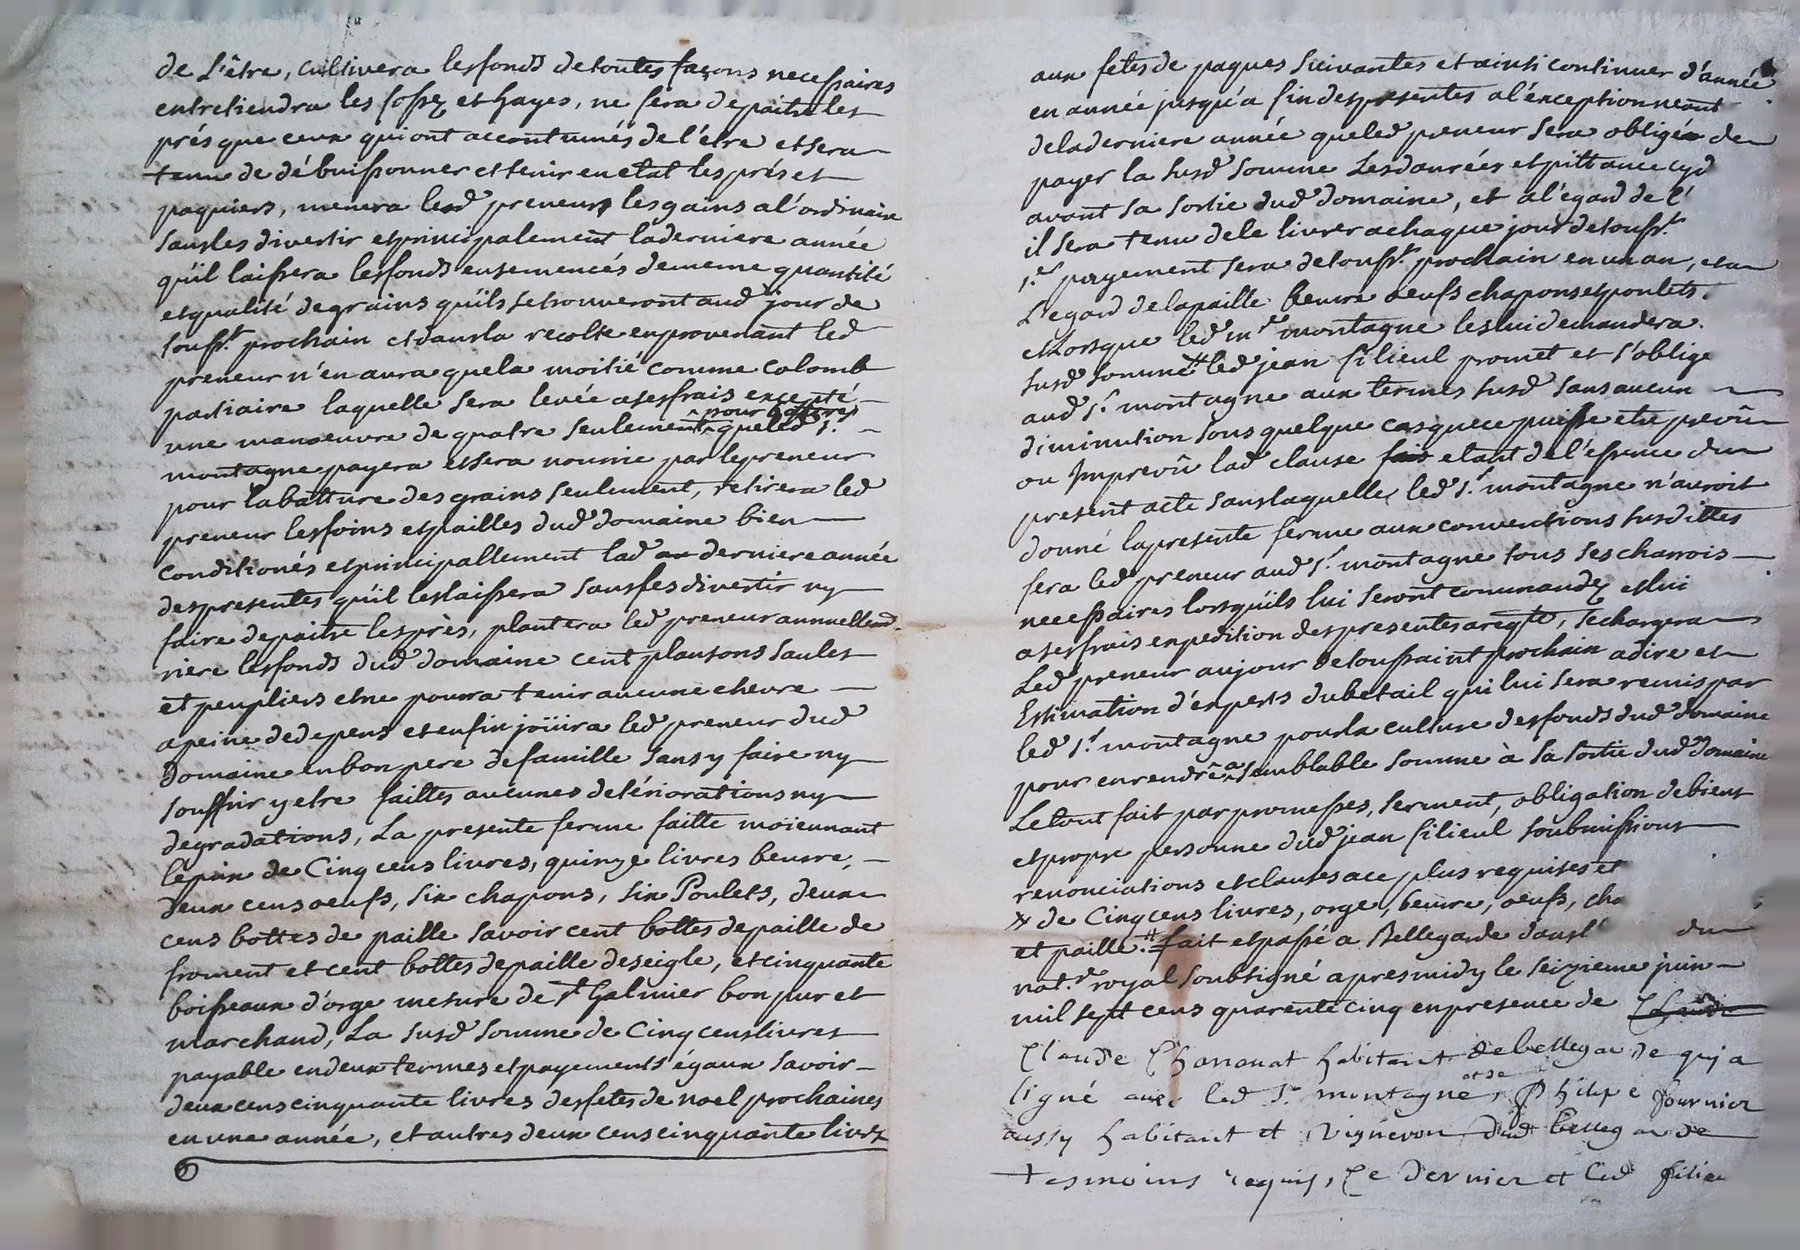 de L'être, cultivera les fonds de toutes façons necessaires
entretiendra les fossez et hayes, ne fera depaitre les
prés que ceux qui ont accoutumés de l'être et sera
tenu de débuissonner et tenir en etat les prés et
paquiers, menera led preneur les gains a l'ordinaire
sans les divertir et principalement la derniere année
qu'il laissera les fonds ensemencés de meme quantité
et qualité de grains qu'ils se trouveront aud jour de
touss.t prochain et dans la recolte en provenant led
preneur n'en aura que la moitié comme Colomb
partiaire laquelle sera levée a ses frais excepté
une manoeuvre de quatre seulement ^pour que led s.r
montagne payera et sera nourrie par le preneur
pour la batture des grains seulement, retirera led
preneur les foins et pailles dud domaine bien
Conditionés et principallement lad derniere année
des presentes qu'il les laissera sans les divertir ny
faire depaitre les près, plantera led preneur annuellem.t
riere les fonds dud domaine cent plansons saules
et peupliers et ne pourra tenir aucune chevre
a peine de depens et enfin joüira led preneur dud
Domaine en bon pere de famille sans y faire ny
souffrir y etre faittes aucunes detériorations ny
degradations, La presente ferme faitte moïennant
le prix de Cinq cens livres, quinze livres beurre,
deux cens oeufs, six chapons, six Poulets, deux
cens bottes de paille savoir cent bottes de paille de
froment et cent bottes de paille de seigle, et cinquante
boisseaux d'orge mesure de s.t Galmier bon pur et
marchand, La susd somme de Cinq cens livres
payable en deux termes et payements égaux savoir
deux cens cinquante livres des fetes de noel prochaines
en une année, et autres deux cens cinquante livres
aux fetes de paques suivantes et ainsi continuer d'année
en année jusqu'a fin des presentes a l'exception neant
de la derniere année que led preneur sera obligé de
payer la susd somme Les danrées et pittance cyd
avant sa sortie dud domaine, et a l'égard de l'
il sera tenu de le livrer a chaque jour de touss.t
1.er payement sera de touss.t prochain en un an, et a
L'egard de la paille beurre oeufs chapons et poulets.
et lorsque led m.re montagne les lui demandera.
susd somme # led jean filieul promet et s'oblige
aud s.r montagne aux termes susd sans aucun
diminution sous quelque cas que ce puisse etre prevû
ou Imprevû lad clause etant de l'essence du
present acte sans laquelle led s.r montagne n'auroit
donné la presente ferme aux conventions susdittes
fera led preneur aud s.r montagne tous ses charrois
necessaires lorsqu'ils lui seront commandez et lui
a ses frais expedition des presentes a reqte, se chargera
Led preneur au jour de toussaint prochain a dire et
Estimation d'experts du betail qui lui sera remis par
led s.r montagne pour la culture des fonds dud domaine
pour en rendre ^a semblable somme à sa sortie dud domaine
Le tout fait par promesses, serment, obligation de biens
et propre personne dud jean filieul soubmissions
renonciations et clauses a ce plus requises et
# de Cinq cens livres, orge, beurre, oeufs, cha
et paille. # fait et passé a Bellegarde dans l' du
not.re royal soubsigné apres midy le seizieme juin
mil sept cens quarente cinq en presence de
Claude habitant de bellegarde qui a
signé avec led s.r montagne, et de Philipe fournier
aussy habitant et vigneron dud bellegarde
tesmoins requis, Ce dernier et led filieu